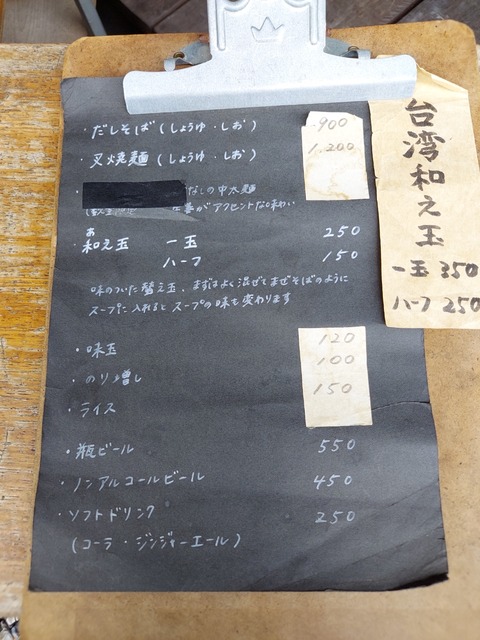 ・だしそば(しょうゆ・しお) 900
・叉焼麺(しょうゆ・しお) 1,200
なしの中太麺
がアクセントな味わい
あ
和え玉 一玉 250
ハーフ 150
味のついた替え玉、まずはよく混ぜてまぜそばのように
スープに入れるとスープの味も変わります
・味玉 120
・のり増し 100
・ライス 150
・瓶ビール 550
・ノンアルコールビール 450
・ソフトドリンク 250
(コーラ・ジンジャーエール)
台湾和え玉
一玉 350
ハーフ 250